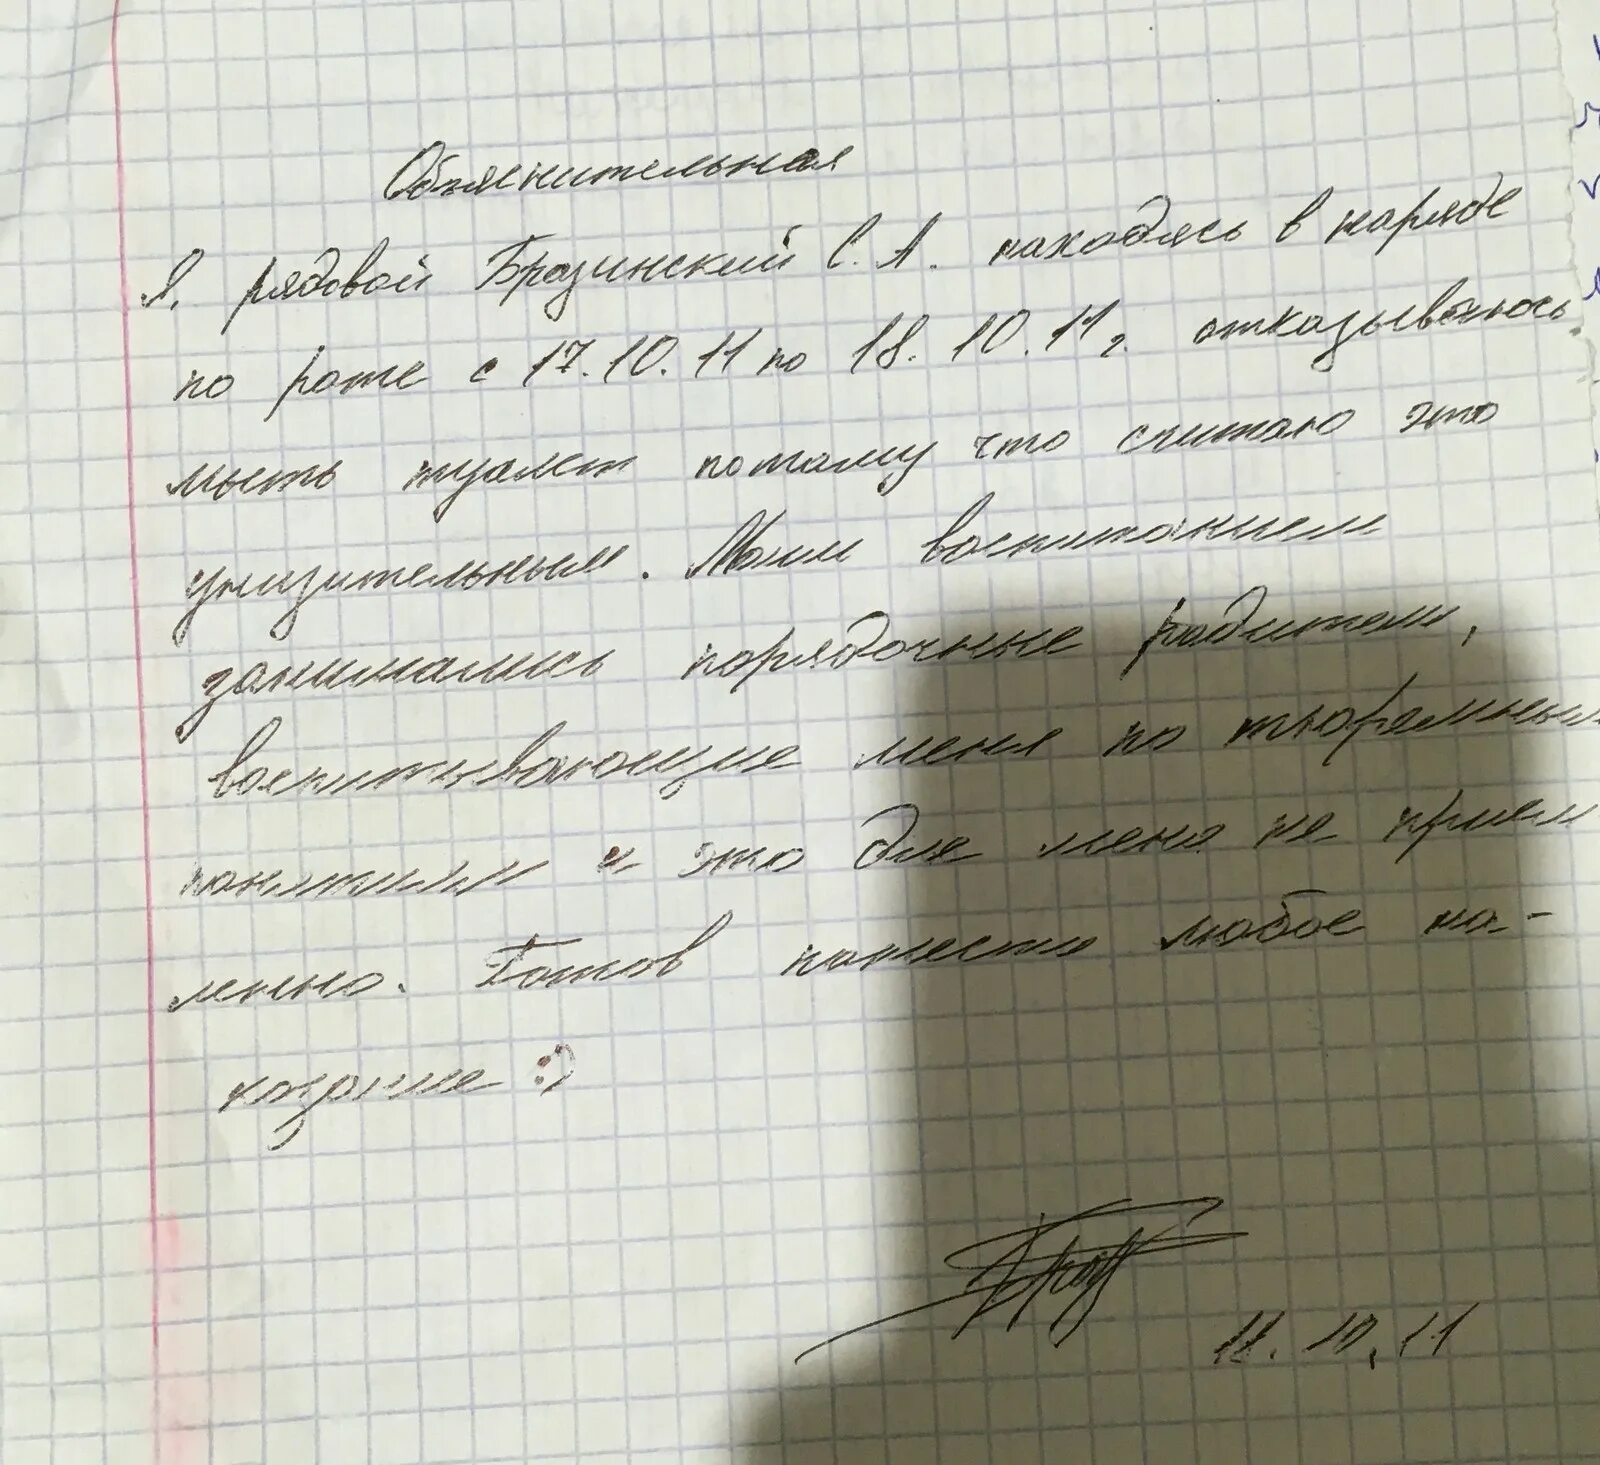 Объяснительная
Я, рядовой Бразинский С. А. находясь в наряде
по роте с 17.10.11 по 18.10.11 г. отказываюсь
мыть туалет потому что считаю это
унизительным. Моим воспитанием
занимались порядочные родители,
воспитывающие меня по тюремным
понятиям и это для меня не прием
лемо. Готов понести любое на-
казание :)
18.10.11